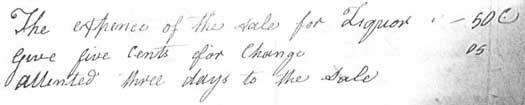 The expence of the Sale for Liquor - 50 C
Gave five Cents for Change 05
attented three days to the Sale